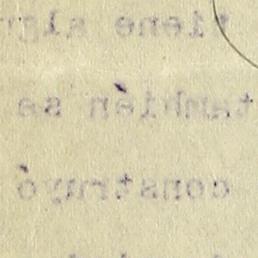 tiene alg
también se
construyó